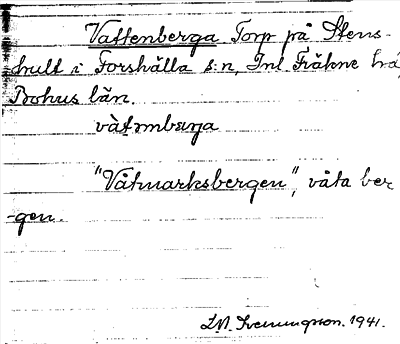 Vattenberga Torp på Stens-
hult i Forshälla s:n, Inl Fräkne hd,
Bohus län.
vàtmbærja
"Våtmarksbergen", våta ber
-gen.
1941.